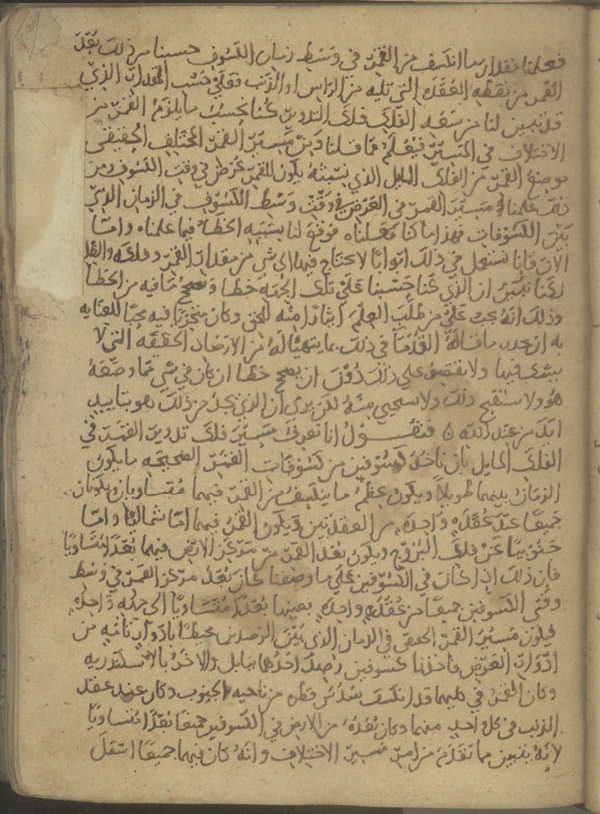 فعلمنا مقدار ما انكسف من القمر فى وسط زمان الكسوف حسبنا من ذلك بعد
القمر من نقطه العقده التى تليه من الراس او الذنب فعلى حسب المقدار الذى
قد تبين لنا من سعه الفلك فلك التدوير كنا نحسب ما يلزم القمر من
الاختلاف فى المسير فيعلم مما قلنا دس مسير القمر المختلف الحقيقى
موضع القمر من الفلك المايل الذى بسببه يكون للقمر عرض فى وقت الكسوف ومن
ذلك علمنا مسير القمر فى العرض فى وقت وسط الكسوف فى الزمان الذى
بين الكسوفات فهذا ما كنا فعلناه فوقع لنا بسببه الخطا فيما علمناه واما
الان فانا نستعمل فى ذلك ابوابا لا نحتاج فيها الى شى من مقدار القمر وفلكه والظل
لكنا نبين ان الذى كنا حسبنا على تلك الجهه خطا ونصحح ما فيه من الخطا
وذلك انه يجب على من طلب العلم ايثارا منه للحق وكان متحريا فيه محبا للعنايه
به ان يجدد ما قاله القدما فى ذلك بما يتهيا له من الارصاد الحقيقه التى لا
يشك فيها ولا يقتصر على ذلك دون ان يصحح خطا ان كان فى شى مما وصفه
هو ولا يستقبح ذلك ولا يستحيى منه لكن يرى ان الذى يحل من ذلك هو بتاييد
ايد من عند الله ٥ فنقول انا نعرف مسير فلك تدوير القمر فى
الفلك المايل بان ناخذ كسوفين من كسوفات القمر الصحيحه ما يكون
الزمان بينهما طويلا ويكون عظم ما ينكسف من القمر فيهما متساويان ويكونان
جميعا عند عقده واحده من العقدتين ويكون القمر فيهما اما شماليا واما
جنوبيا عن فلك البروج ويكون بعد القمر من مركز الارض فيهما بعدا متساويا
فان ذلك اذا كان فى الكسوفين على ما وصفنا كان بعد مركز القمر فى وسط
وقتى الكسوفين جميعا من عقده واحده بعينها بعدا متساويا الى جهه واحده
فيكون مسير القمر الحقيقى فى الزمان الذى بين الرصدين محيطا بادوار تامه من
ادوار العرض فاخذنا كسوفين رصد احدهما ببابل والاخر بالاسكندريه
وكان القمر فى كليهما قد انكسف سدس قطره من ناحيه الجنوب وكان عند عقد
الذنب فى كل واحد منهما وكان بعده من الارض فى الكسوفين جميعا بعدا متساويا
لانه يتبين مما تقدم من امر مسير الاختلاف وانه كان فيهما جميعا اسفل